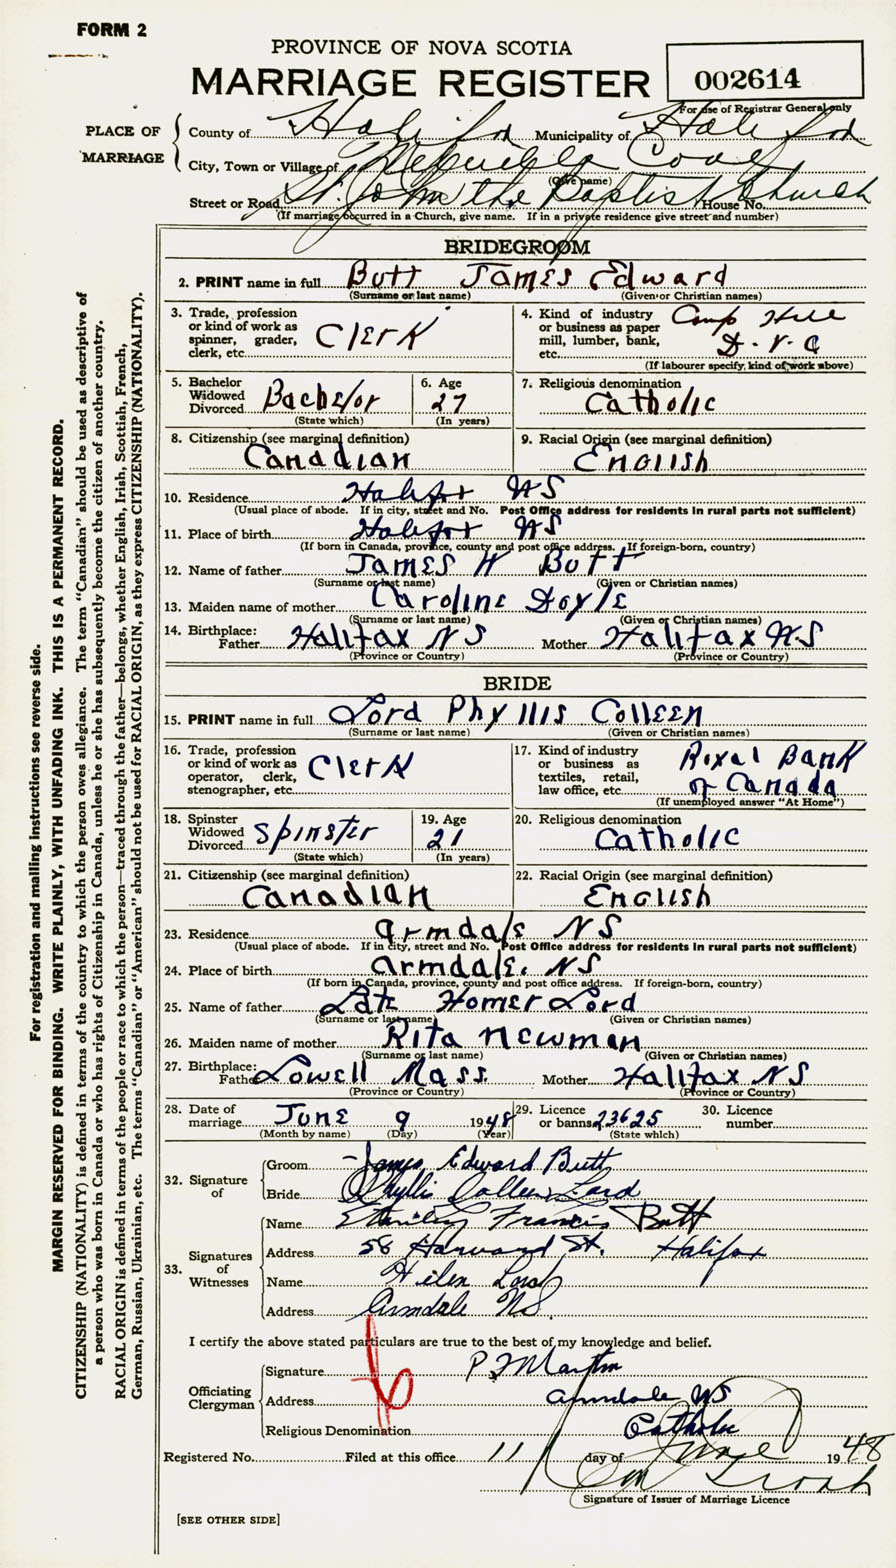 FORM 2
PROVINCE OF NOVA SCOTIA
MARRIAGE REGISTER
002614
For use of Registrar General only
PLACE OF MARRIAGE
County of Halifax Municipality of Halifax
City, Town or Village of Melville Cove
(Give name)
Street or Road St. John the Baptist Church House No.
(If marriage occurred in a Church, give name. If in a private residence give street and number)
BRIDEGROOM
2. PRINT name in full Butt James Edward
(Surname or last name) (Given or Christian names)
3. Trade, profession or kind of work as spinner, grader, clerk, etc. Clerk
4. Kind of industry or business as paper mill, lumber, bank, etc. Camp Hill D.V.A
(If labourer specify, kind of work above)
5. Bachelor Widowed Divorced Bachelor
(State which)
6. Age 27
(In years)
7. Religious denomination Catholic
8. Citizenship (see marginal definition) Canadian
9. Racial Origin (see marginal definition) English
10. Residence Halifax NS
(Usual place of abode. If in city, street and No. Post Office address for residents in rural parts not sufficient)
11. Place of birth Halifax NS
(If born in Canada, province, county and post office address. If foreign-born, country)
12. Name of father James W Butt
(Surname or last name) (Given or Christian names)
13. Maiden name of mother Caroline Doyle
(Surname or last name) (Given or Christian names)
14. Birthplace: Father Halifax NS Mother Halifax NS
(Province or Country) (Province or Country)
BRIDE
15. PRINT name in full Lord Phyllis Colleen
(Surname or last name) (Given or Christian names)
16. Trade, profession or kind of work as operator, clerk, stenographer, etc. Clerk
17. Kind of industry or business as textiles, retail, law office, etc. Royal Bank of Canada
(If unemployed answer "At Home")
18. Spinster Widowed Divorced Spinster
(State which)
19. Age 21
(In years)
20. Religious denomination Catholic
21. Citizenship (see marginal definition) Canadian
22. Racial Origin (see marginal definition) English
23. Residence Armdale NS
(Usual place of abode. If in city, street and No. Post Office address for residents in rural parts not sufficient)
24. Place of birth Armdale. NS
(If born in Canada, province, county and post office address. If foreign-born, country)
25. Name of father Late Homer Lord
(Surname or last name) (Given or Christian names)
26. Maiden name of mother Rita Newman
(Surname or last name) (Given or Christian names)
27. Birthplace: Father Lowell Mass. Mother Halifax NS
(Province or Country) (Province or Country)
28. Date of marriage June 9 1948
(Month by name) (Day) (Year)
29. Licence or banns 23625
(State which)
30. Licence number
32. Signature of
Groom James Edward Butt
Bride Phyllis Colleen Lord
33. Signatures of Witnesses
Name Stanley Francis Butt
Address 58 Harvard St. Halifax
Name Helen Lord
Address Armdale NS.
I certify the above stated particulars are true to the best of my knowledge and belief.
Officiating Clergyman
Signature
Address Armdale NS
Religious Denomination Catholic
Registered No. Filed at this office 11 day of June 1948
Signature of Issuer of Marriage Licence
[SEE OTHER SIDE]
For registration and mailing instructions see reverse side.
MARGIN RESERVED FOR BINDING. WRITE PLAINLY, WITH UNFADING INK. THIS IS A PERMANENT RECORD.
CITIZENSHIP (NATIONALITY) is defined in terms of the country to which the person owes allegiance. The term "Canadian" should be used as descriptive of
a person who was born in Canada or who has rights of Citizenship in Canada, unless he or she has subsequently become the citizen of another country.
RACIAL ORIGIN is defined in terms of the people or race to which the person—traced through the father—belongs, whether English, Irish, Scottish, French,
German, Russian, Ukrainian, etc. The terms "Canadian" or "American" should not be used for RACIAL ORIGIN, as they express CITIZENSHIP (NATIONALITY).